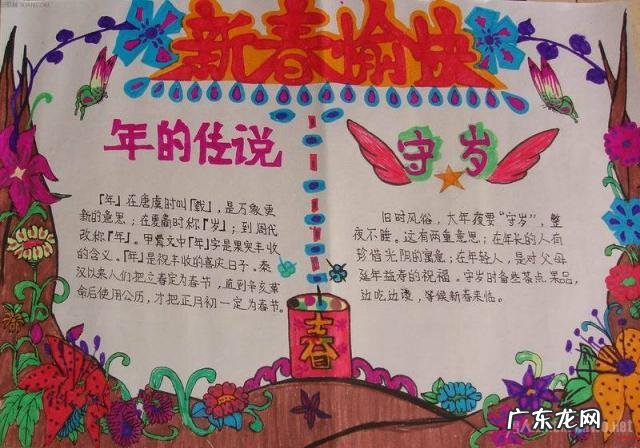 新春愉快
年的传说
『年』在唐虞时叫『载』，是万象更
新的意思；在夏商时称『岁』；到周代
改称『年』。甲骨文中『年』字是果实丰收
的含义。『年』是祝丰收的喜庆日子。秦
汉以来人们把立春定为春节，直到辛亥革
命后使用公历，才把正月初一定为春节。
守岁
旧时风俗，大年夜要“守岁”，整
夜不睡。这有两重意思；在年长的人有
珍惜光阴的寓意；在年轻人，是对父母
延年益寿的祝福。守岁时备些茶点果品，
边吃边谈，等候新春来临。
春
广东龙网